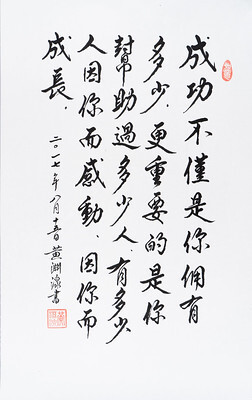 成功不僅是你佣有
多少,更重要的是你
幫助過多少人,有多少
人因你而感動,因你而
成長.
二〇一七年八月十五日黃淵源書